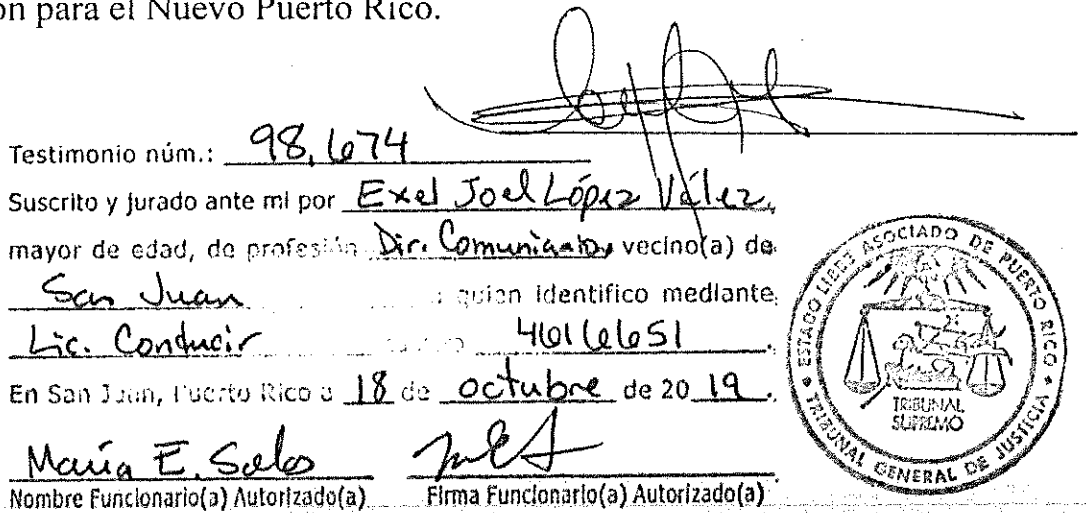 ón para el Nuevo Puerto Rico.
Testimonio núm.: 98,674
Suscrito y jurado ante mí por Exel Joel López Vélez,
mayor de edad, de profesión Dir. vecino(a) de
San Juan a quien identifico mediante
Lic. Conducir 4616651.
En San Juan, Puerto Rico a 18 de octubre de 2019.
María E.
Nombre Funcionario(a) Autorizado(a) Firma Funcionario(a) Autorizado(a)
ESTADO LIBRE ASOCIADO DE PUERTO RICO
TRIBUNAL GENERAL DE JUSTICIA
TRIBUNAL
SUPREMO